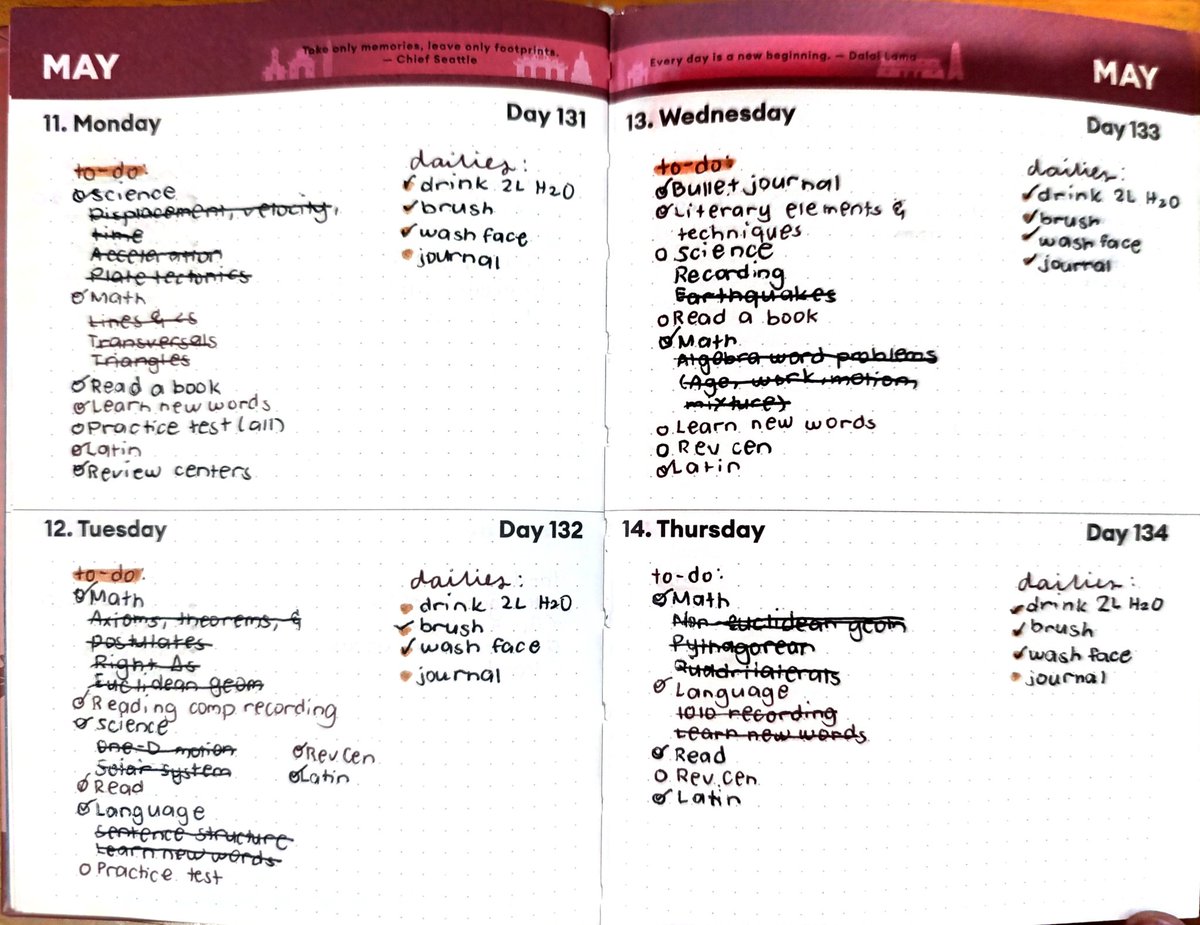 MAY
Take only memories, leave only footprints.
— Chief Seattle
11. Monday
Day 131
to-do:
science
Displacement, velocity,
time
Acceleration
Plate tectonics
Math
Lines & ∠s
Transversals
Triangles
Read a book
Learn new words
Practice test (all)
Latin
Review centers
dailies:
drink 2L H2O
brush
wash face
journal
12. Tuesday
Day 132
to-do:
Math
Axioms, theorems, &
postulates
Right Δs
Euclidean geom
Reading comp recording
science
One-D motion
Solar system
Read
Language
Sentence structure
Learn new words
Practice test
Rev Cen
Latin
dailies:
drink 2L H2O
brush
wash face
journal
Every day is a new beginning. — Dalai Lama
MAY
13. Wednesday
Day 133
to-do:
Bullet journal
Literary elements &
techniques
Science
Recording
Earthquakes
Read a book
Math
Algebra word problems
(Age, work, motion,
mixture)
Learn new words
Rev Cen
Latin
dailies:
drink 2L H2O
brush
wash face
journal
14. Thursday
Day 134
to-do:
Math
Non-euclidean geom
Pythagorean
Quadrilaterals
Language
1010 recording
Learn new words
Read
Rev Cen
Latin
dailies:
drink 2L H2O
brush
wash face
journal